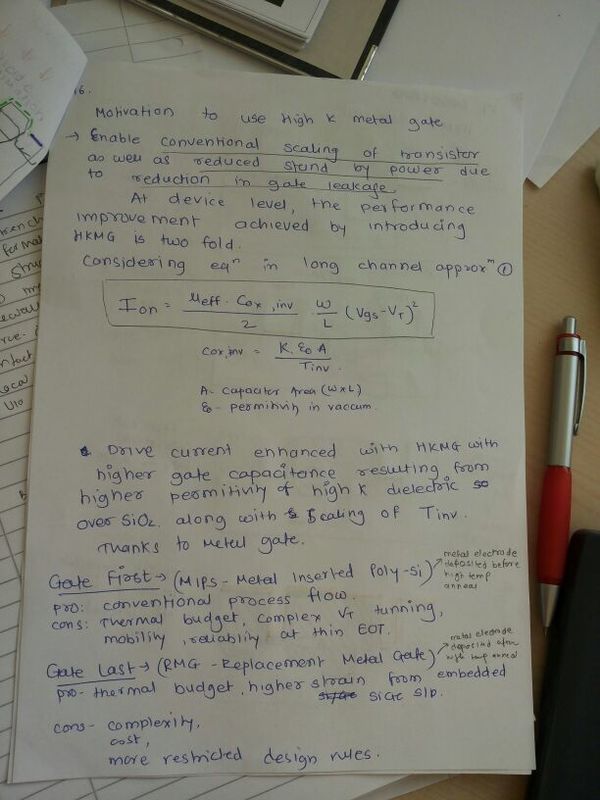 16.
Motivation to use High K metal gate
→ Enable conventional scaling of transistor
as well as reduced stand by power due
to reduction in gate leakage
At device level, the performance
improvement achieved by introducing
HKMG is two fold.
Considering eqⁿ in long channel approxᵐ ①
Ion = μeff. Cox,inv / 2 · W/L (Vgs-VT)²
Cox,inv = K. ε0 A / Tinv.
A- capacitor Area (W×L)
ε0 - permitivity in vaccum.
Drive current enhanced with HKMG with
higher gate capacitance resulting from
higher permitivity of high K dielectric
over SiO2. along with scaling of Tinv.
Thanks to Metal gate.
Gate First → (MIPS - Metal Inserted Poly-Si)
metal electrode
deposited before
high temp
anneal
pro: conventional process flow.
cons: Thermal budget, complex VT tunning,
mobility, reliability at thin EOT.
Gate Last → (RMG - Replacement Metal Gate)
metal electrode
deposited after
high temp anneal
pro- thermal budget, higher strain from embedded
SiGe S/D.
cons- complexity,
cost,
more restricted design rules.